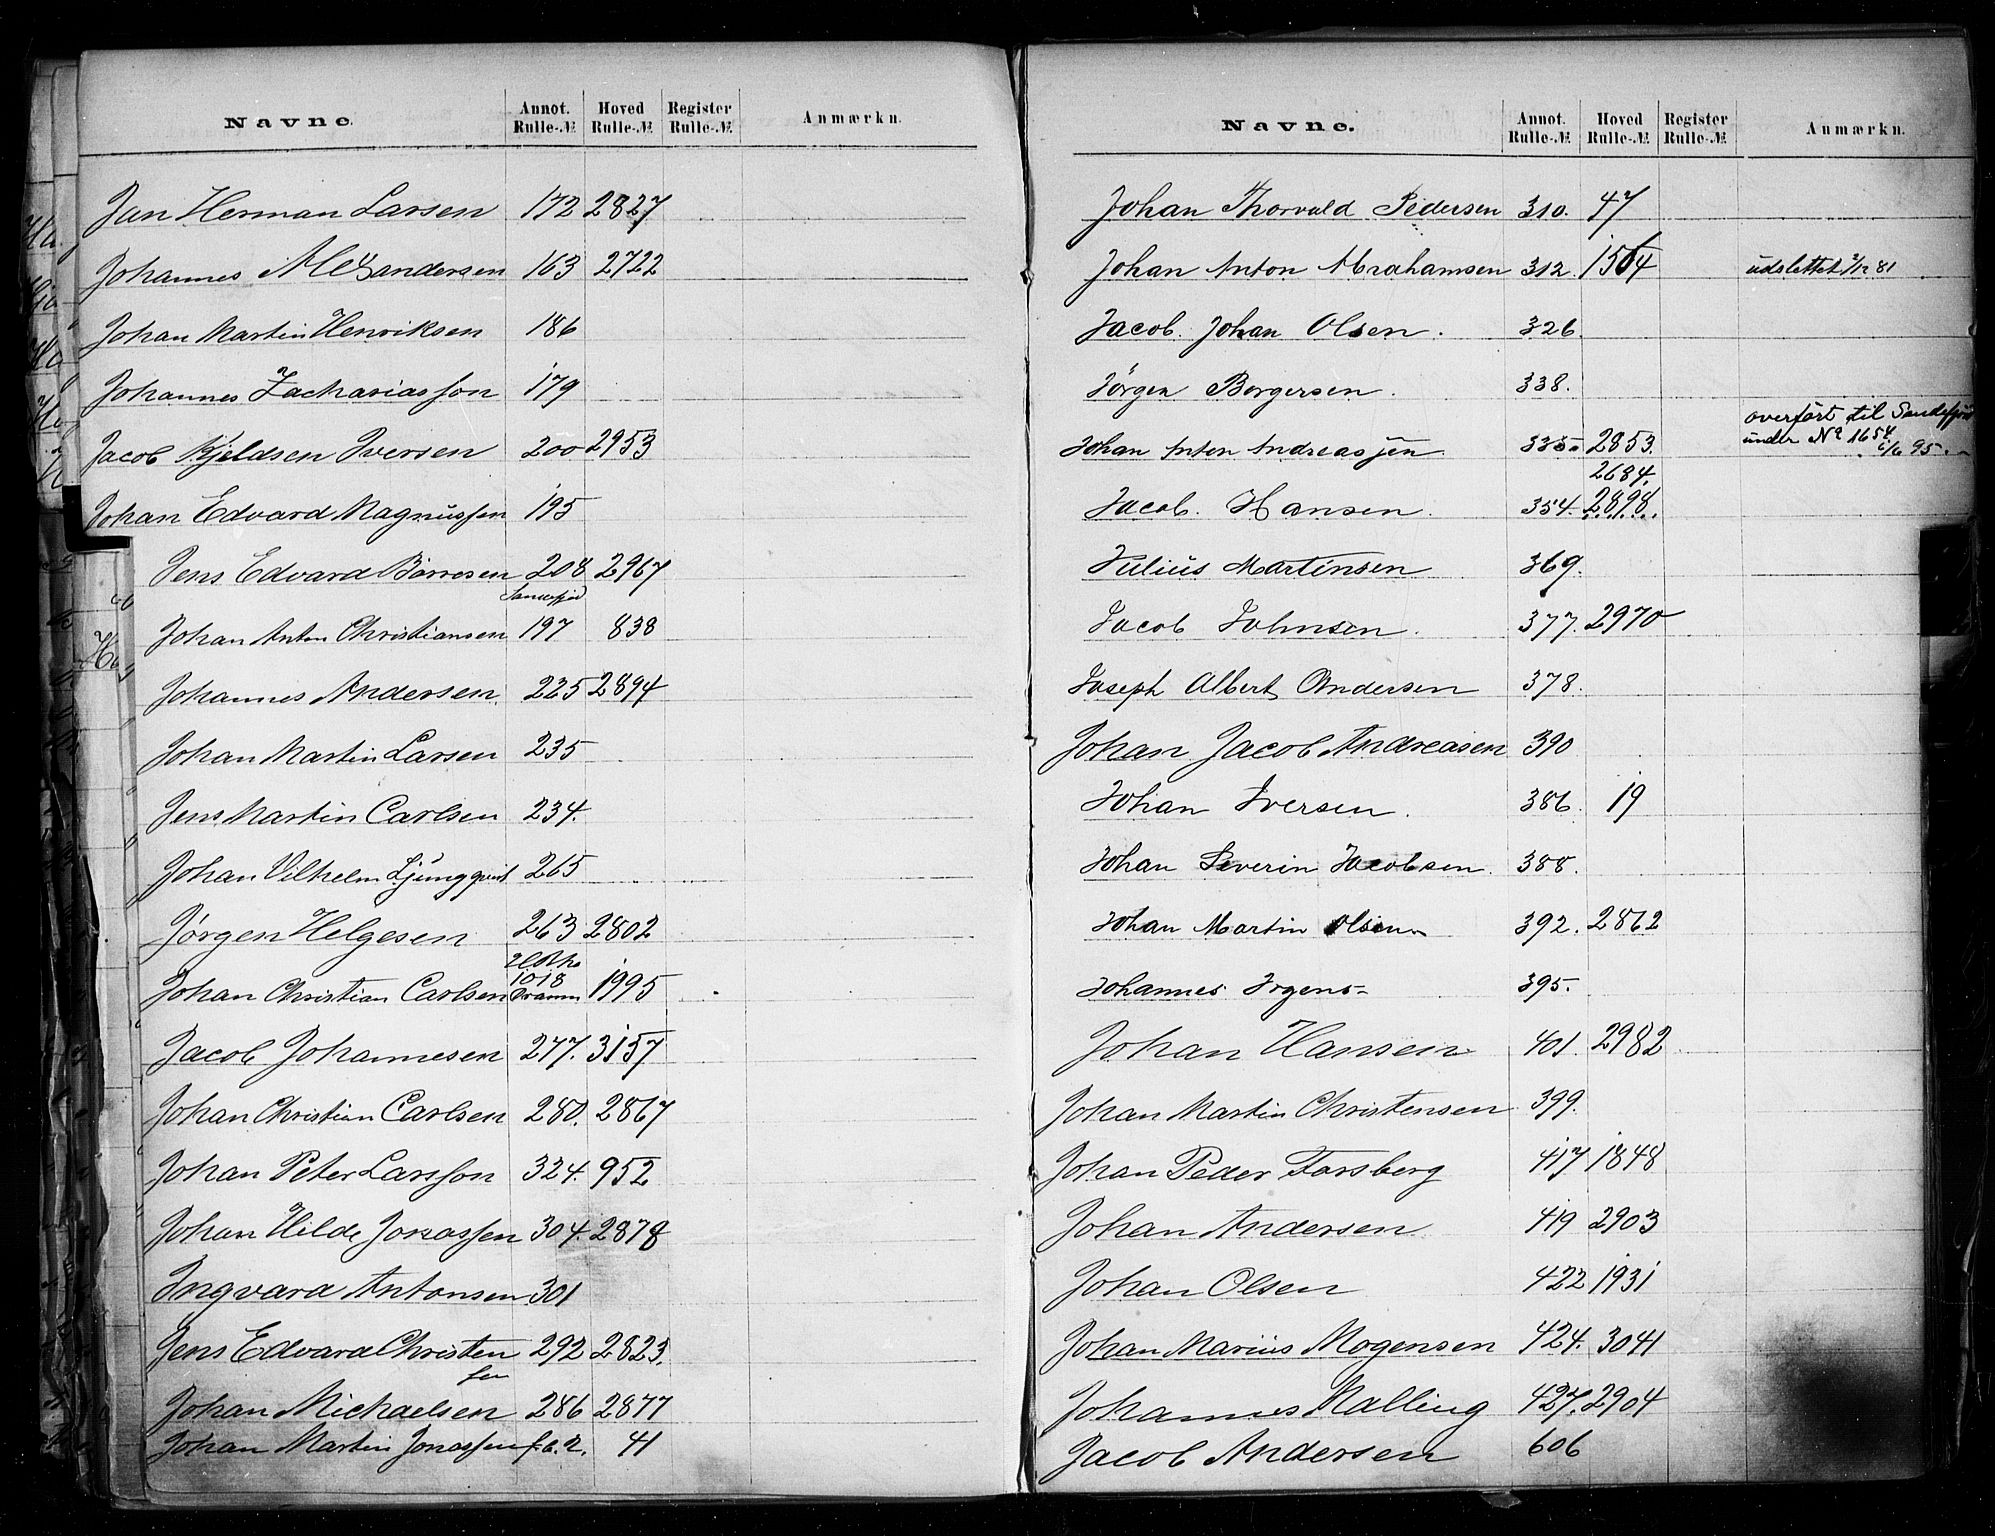 Navne. Annot. Rulle-№ Hoved Rulle-№ Register Rulle-№ Anmærkn.
Jan Herman Larsen 172 2827
Johannes Alexandersen 163 2722
Johan Martin Henriksen 186
Johannes Zachariasson 179
Jacob Kjeldsen Iversen 200 2953
Johan Edvard Magnussen 195
Jens Edvard Börresen 208 2967
Sandefjord
Johan Anton Christiansen 197 838
Johannes Andersen 225 2894
Johan Martin Larsen 235
Jens Martin Carlsen 234.
Johan Vilhelm Ljungqvist 265
Jørgen Helgesen 263 2802
Johan Christian Carlsen 1018 Dramm 1995
Jacob Johannesen 277. 3157
Johan Christian Carlsen 280. 2867
Johan Peter Larsson 324. 952
Johan Hilde Jonassen 304. 2878
Ingvard Antonsen 301
Jens Edvard Christen 292 2823.
sen
Johan Michaelsen 286 2877
Johan Martin Jonassen f.a.2. 41
Navne. Annot. Rulle-№ Hoved Rulle-№ Register Rulle-№ Anmærkn.
Johan Thorvald Pedersen 310. 47
Johan Anton Abrahamsen 312. 1564 udslettet 2/12 81
Jacob. Johan Olsen. 326.
Jörgen Borgersen. 338.
overfört til Sandefjord
under No 1654
Johan Anton Andreassen 335. 2853. 1/6 95.
2684.
Jacob. Hansen. 354. 2898.
Julius Martinsen 369.
Jacob Johnsen. 377. 2970
Joseph Albert Andersen 378.
Johan Jacob Andreasen 390
Johan Iversen. 386. 19
Johan Severin Jacobsen. 388.
Johan Martin Olsen 392. 2862
Johannes Irgens 395.
Johan Hansen 401. 2982
Johan Martin Christensen 399.
Johan Peder Forsberg 417 1848
Johan Andersen 419 2903
Johan Olsen 422 1931
Johan Marius Mogensen 424. 3041
Johannes Malling 427. 2904
Jacob Andersen 606